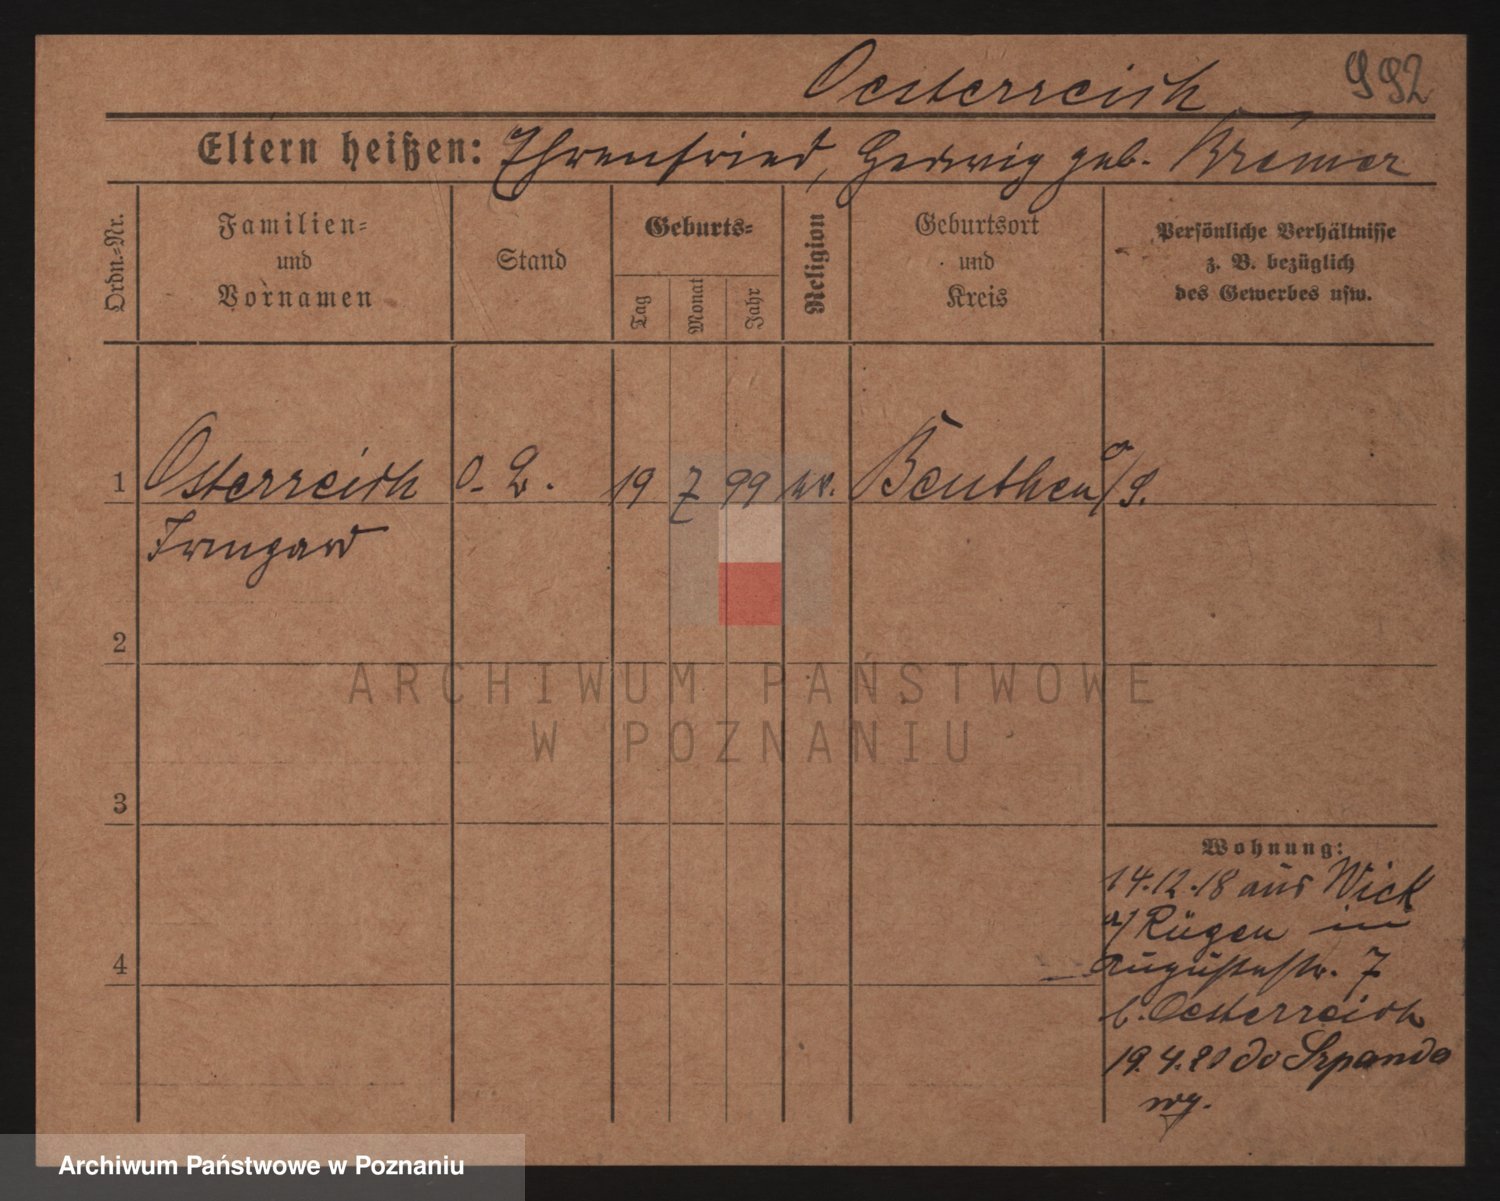 Oesterreich 992
Eltern heißen: Ehrenfried, Hedwig geb. Kremer
Ordn.-Nr.
Familien-
und
Vornamen
Stand
Geburts-
Tag
Monat
Jahr
Religion
Geburtsort
und
Kreis
Persönliche Verhältnisse
z. B. bezüglich
des Gewerbes usw.
1 Östereich O. L. 19 7 99 Beuthen O/S.
Irmgard
2
3
4
ARCHIWUM PAŃSTWOWE
W POZNANIU
Wohnung:
14.12.18 aus Wick
a/ Rügen in
Augustastr. 7
b. Oesterreich
19.4.20 do Szpanda
wy.
Archiwum Państwowe w Poznaniu